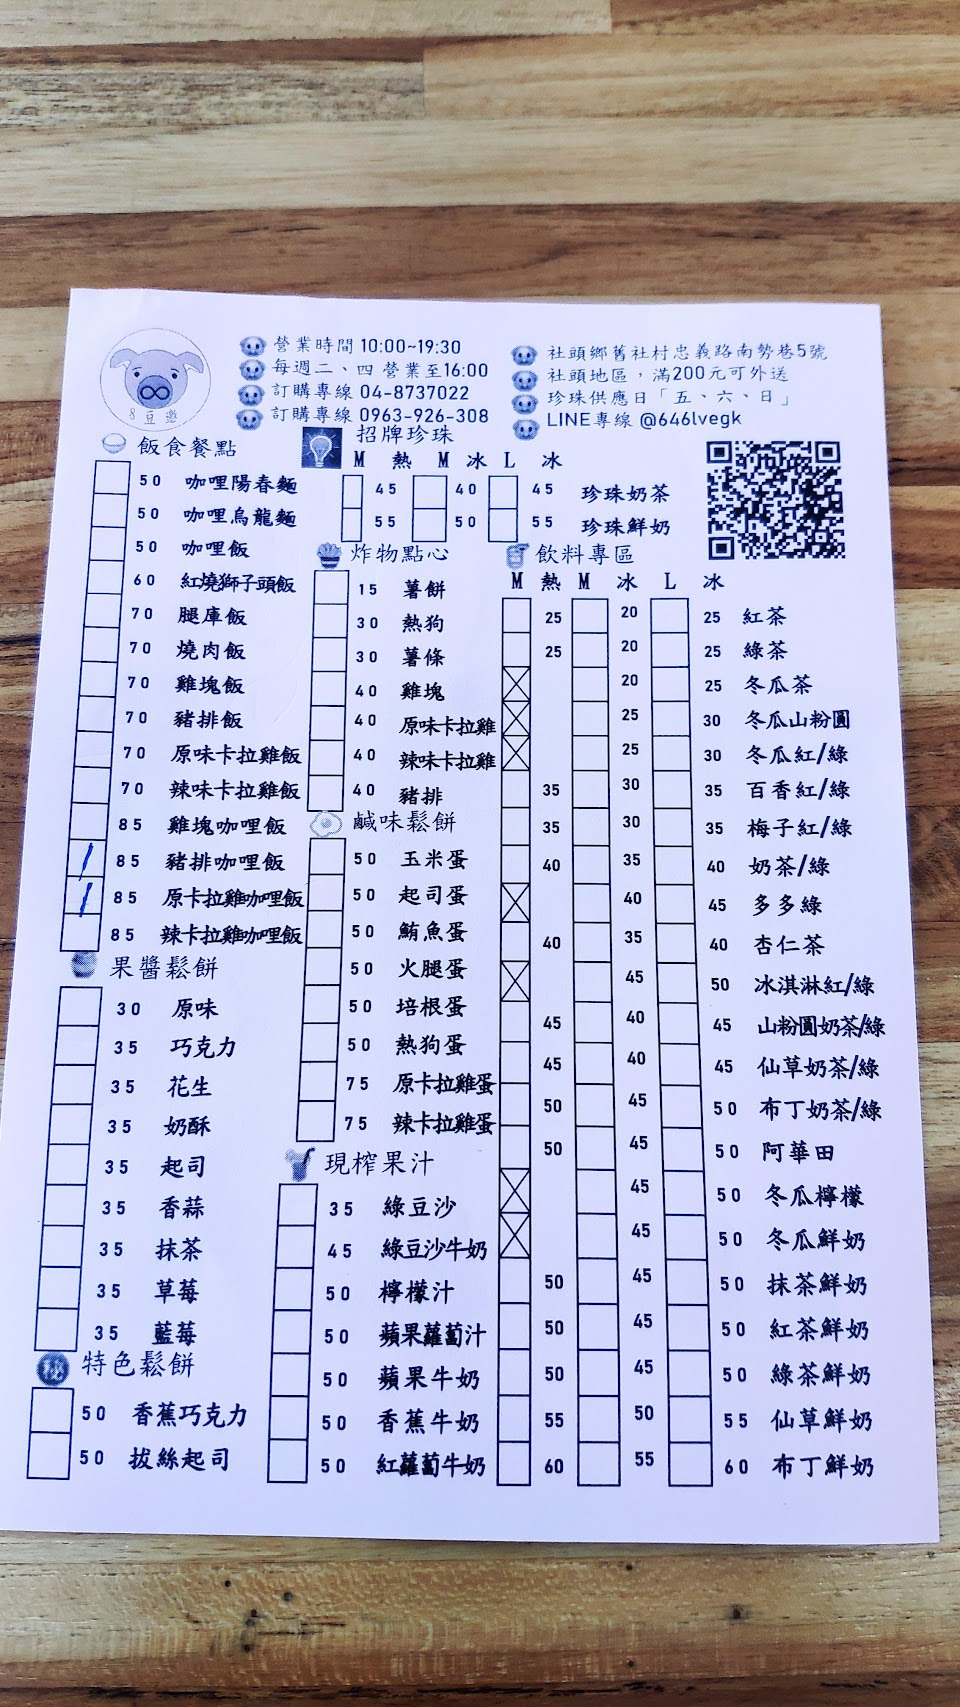 8豆邀
營業時間 10:00~19:30
每週二、四 營業至16:00
訂購專線 04-8737022
訂購專線 0963-926-308
社頭鄉舊社村忠義路南勢巷5號
社頭地區，滿200元可外送
珍珠供應日「五、六、日」
LINE專線 @646lvegk
飯食餐點
50 咖哩陽春麵
50 咖哩烏龍麵
50 咖哩飯
60 紅燒獅子頭飯
70 腿庫飯
70 燒肉飯
70 雞塊飯
70 豬排飯
70 原味卡拉雞飯
70 辣味卡拉雞飯
85 雞塊咖哩飯
/ 85 豬排咖哩飯
/ 85 原卡拉雞咖哩飯
85 辣卡拉雞咖哩飯
果醬鬆餅
30 原味
35 巧克力
35 花生
35 奶酥
35 起司
35 香蒜
35 抹茶
35 草莓
35 藍莓
秘 特色鬆餅
50 香蕉巧克力
50 拔絲起司
招牌珍珠
M 熱 M 冰 L 冰
45 40 45 珍珠奶茶
55 50 55 珍珠鮮奶
炸物點心
15 薯餅
30 熱狗
30 薯條
40 雞塊
40 原味卡拉雞
40 辣味卡拉雞
40 豬排
鹹味鬆餅
50 玉米蛋
50 起司蛋
50 鮪魚蛋
50 火腿蛋
50 培根蛋
50 熱狗蛋
75 原卡拉雞蛋
75 辣卡拉雞蛋
現榨果汁
35 綠豆沙
45 綠豆沙牛奶
50 檸檬汁
50 蘋果蘿蔔汁
50 蘋果牛奶
50 香蕉牛奶
50 紅蘿蔔牛奶
飲料專區
M 熱 M 冰 L 冰
25 20 25 紅茶
25 20 25 綠茶
20 25 冬瓜茶
25 30 冬瓜山粉圓
25 30 冬瓜紅/綠
35 30 35 百香紅/綠
35 30 35 梅子紅/綠
40 35 40 奶茶/綠
40 45 多多綠
40 35 40 杏仁茶
45 50 冰淇淋紅/綠
45 40 45 山粉圓奶茶/綠
45 40 45 仙草奶茶/綠
50 45 50 布丁奶茶/綠
50 45 50 阿華田
45 50 冬瓜檸檬
45 50 冬瓜鮮奶
50 45 50 抹茶鮮奶
50 45 50 紅茶鮮奶
50 45 50 綠茶鮮奶
55 50 55 仙草鮮奶
60 55 60 布丁鮮奶